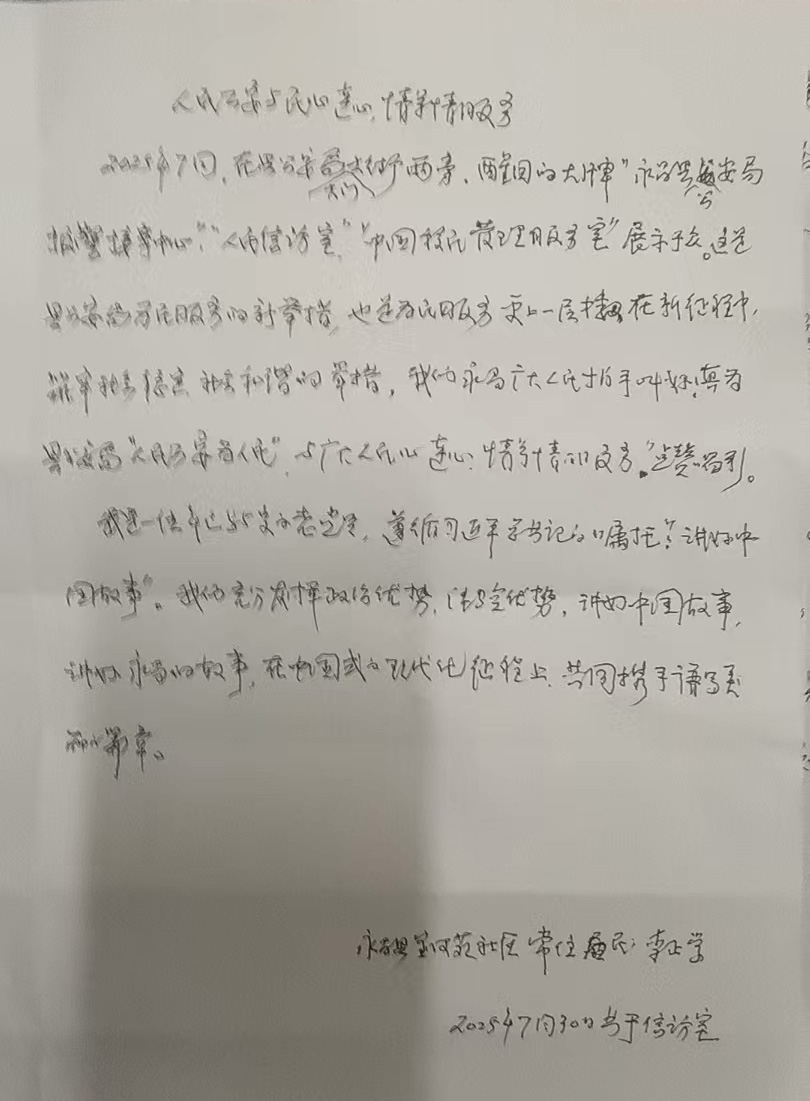 人民公安与民心连心,情系情的服务
2025年7月,在县公安局大门两旁,醒目的大牌"永昌县公安局
报警接案中心""人民信访室""中国移民管理服务室"展示于众。这是
县公安局为民服务的新举措,也是为民服务更上一层楼在新征程中,
社会和谐的举措,我们永昌广大人民拍手叫好!真为
县公安局"人民公安为人民",与广大人民心连心、情系情的服务。点赞喝彩。
我是一位年已85岁的老党员,遵循习近平总书记的嘱托"讲好中
国故事"。我们充分发挥政治优势,优势,讲好中国故事,
讲好永昌的故事,在中国式的现代化征程上,共同携手谱写美
丽的篇章。
永昌县社区常住居民:李正学
2025年7月30日书于信访室